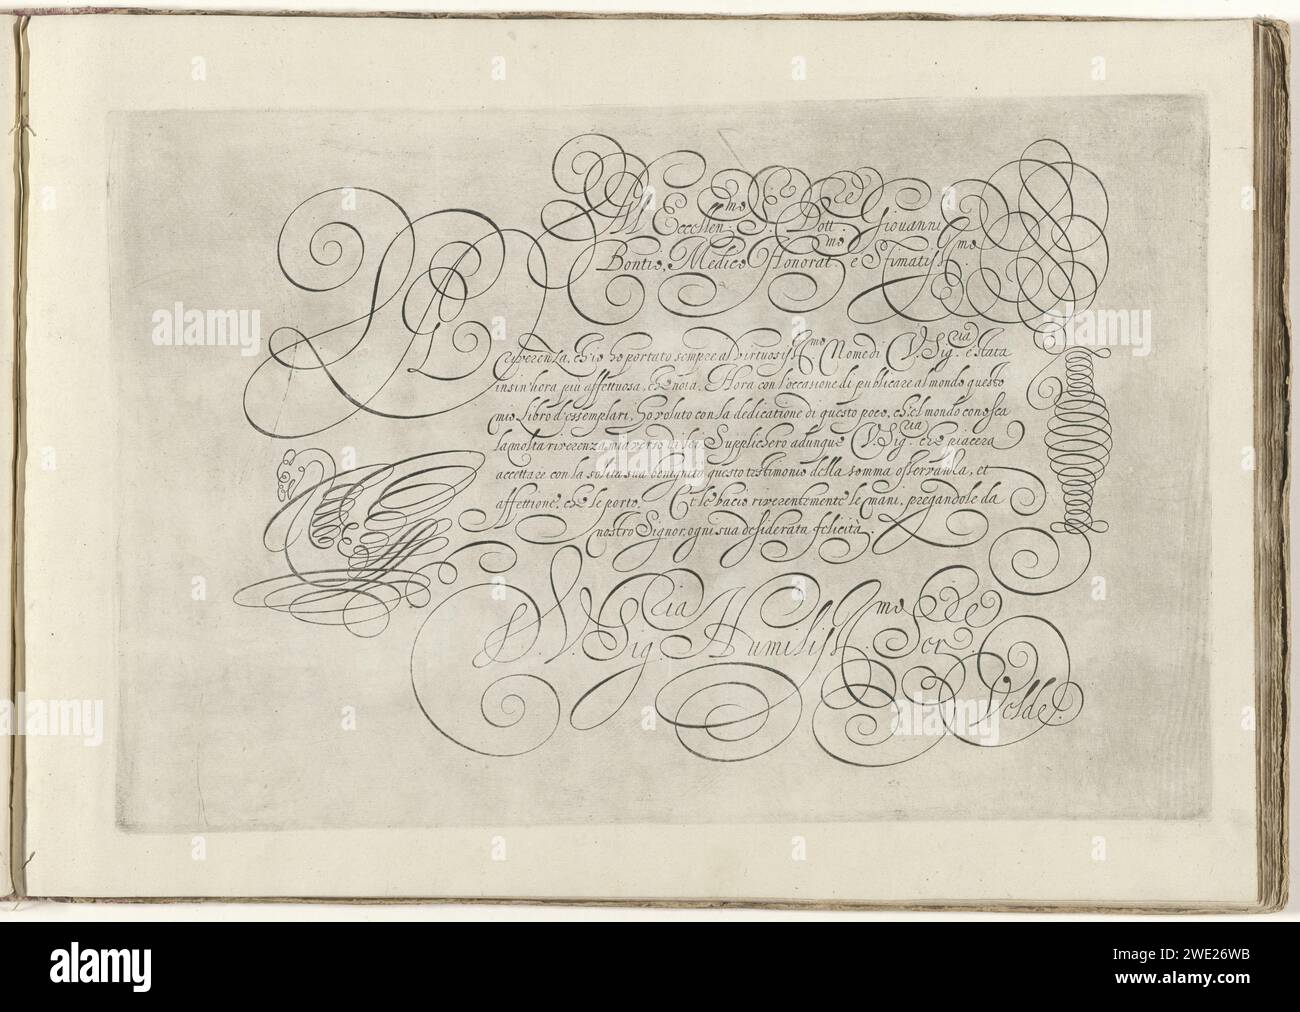 All Eccellen.mo S.r Dott.re Giovanni
Bontio, Medico Honorat.mo e Stimatiss.mo
LA
riverenza, ch'io ho portato sempre al virtuosiss.mo Nome di V. Sig.ria è stata
insin'hora piu affettuosa, che nota. Hora con l'occasione di publicare al mondo questo
mio Libro d'essemplari, ho voluto con la dedicatione di questo poco, ch'el mondo conosca
la molta riverenza mia verso di lei. Supplichero adunque V. Sig.ria che piacera
accettare con la solita sua benignita questo testimonio della somma osservanza, et
affettione, che le porto. Et le bacio riverentemente le mani, pregandole da
nostro Signor, ogni sua desiderata felicita.
D. V. Sig.ria Humiliss.mo Ser.re
Velde.
alamy
alamy
Image ID: 2WE26WB
www.alamy.com